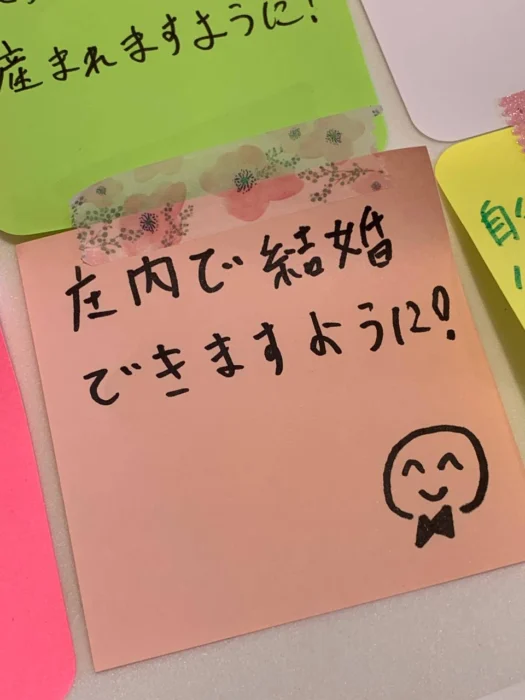 産まれますように!
庄内で結婚
できますように!
自